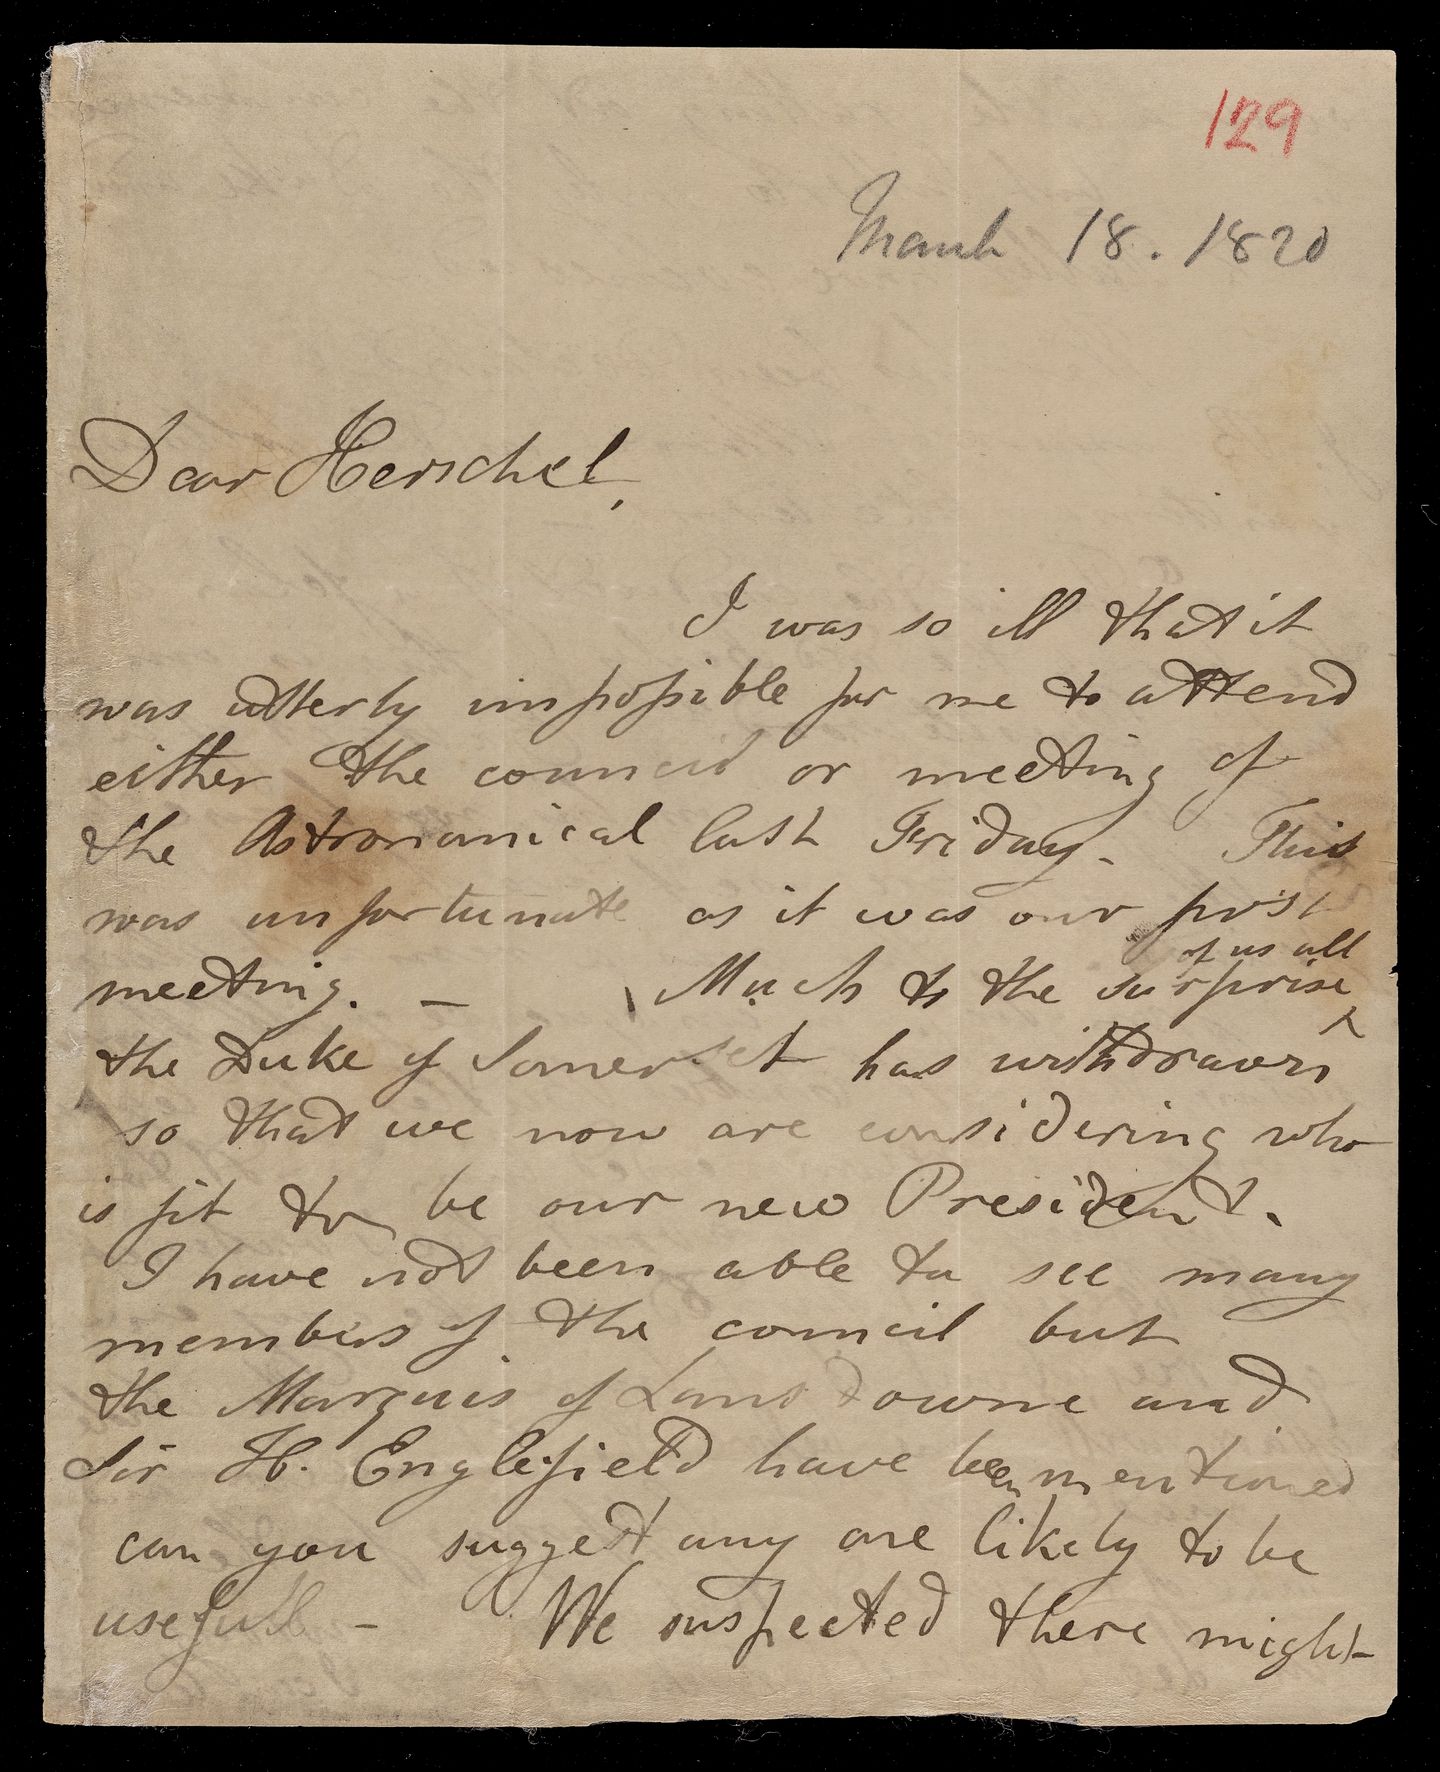 129
March 18. 1820
Dear Herschel,
I was so ill that it
was utterly impossible for me to attend
either the council or meeting of
the Astronomical last Friday. This
was unfortunate as it was our first
meeting. — Much to the surprise of us all
the Duke of Somerset has withdrawn
so that we now are considering who
is fit to be our new President.
I have not been able to see many
members of the council but
the Marquis of Lansdowne and
Sir H. Englefield have been mentioned
can you suggest any one likely to be
usefull — We suspected there might